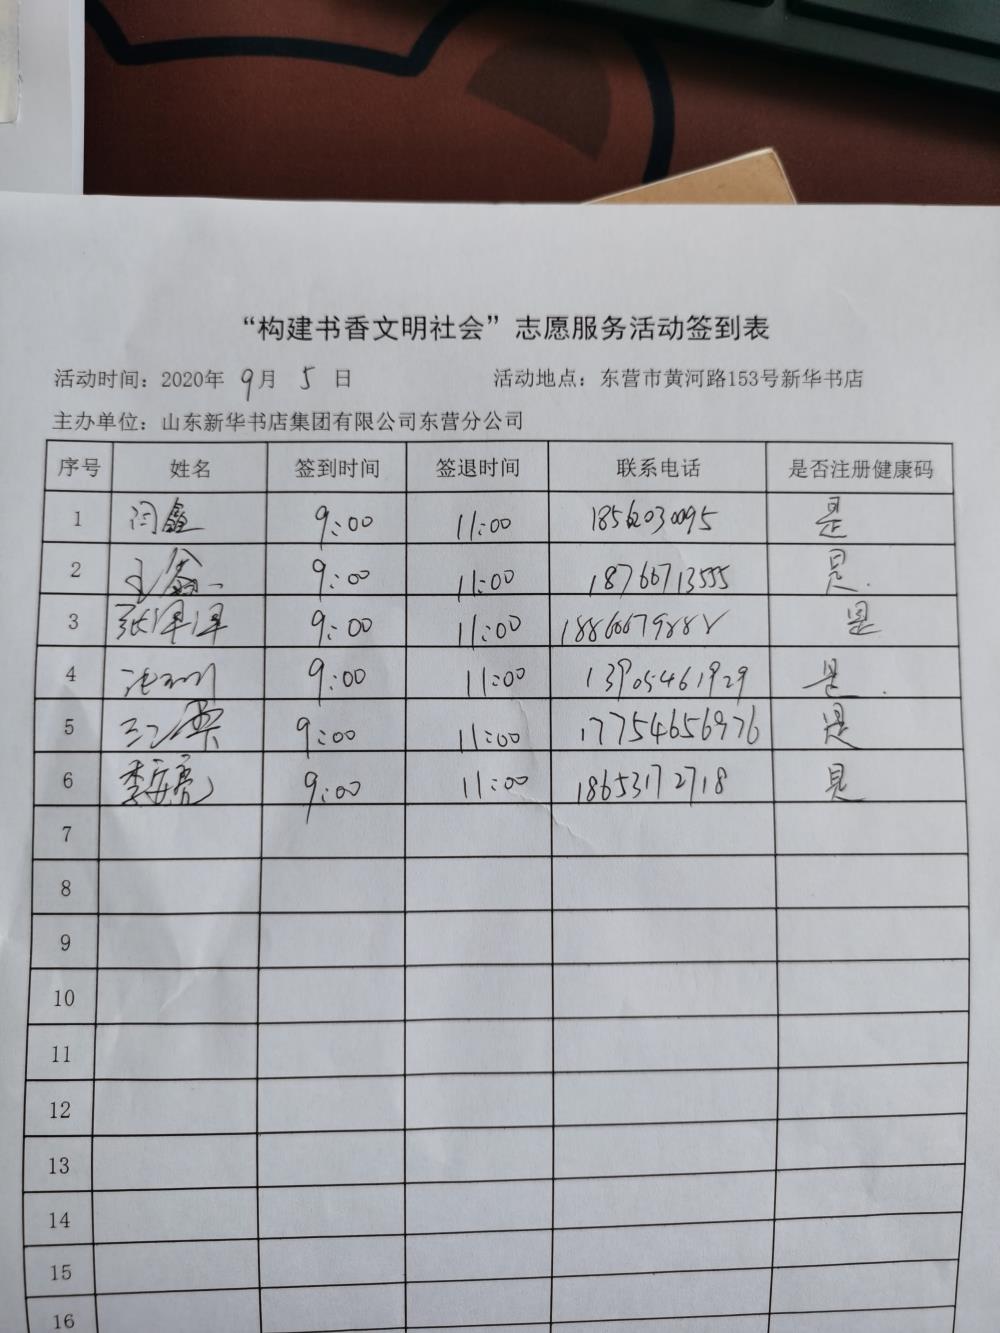 “构建书香文明社会”志愿服务活动签到表
活动时间：2020年 9月 5 日 活动地点：东营市黄河路153号新华书店
主办单位：山东新华书店集团有限公司东营分公司
序号 姓名 签到时间 签退时间 联系电话 是否注册健康码
1 闫鑫 9:00 11:00 是
2 9:00 11:00 18766713555 是.
3 张泽泽 9:00 11:00 是
4 9:00 11:00 13905461929 是.
5 9:00 11:00 17754656976 是
6 李安亮 9:00 11:00 18653172718 是
7
8
9
10
11
12
13
14
15
16